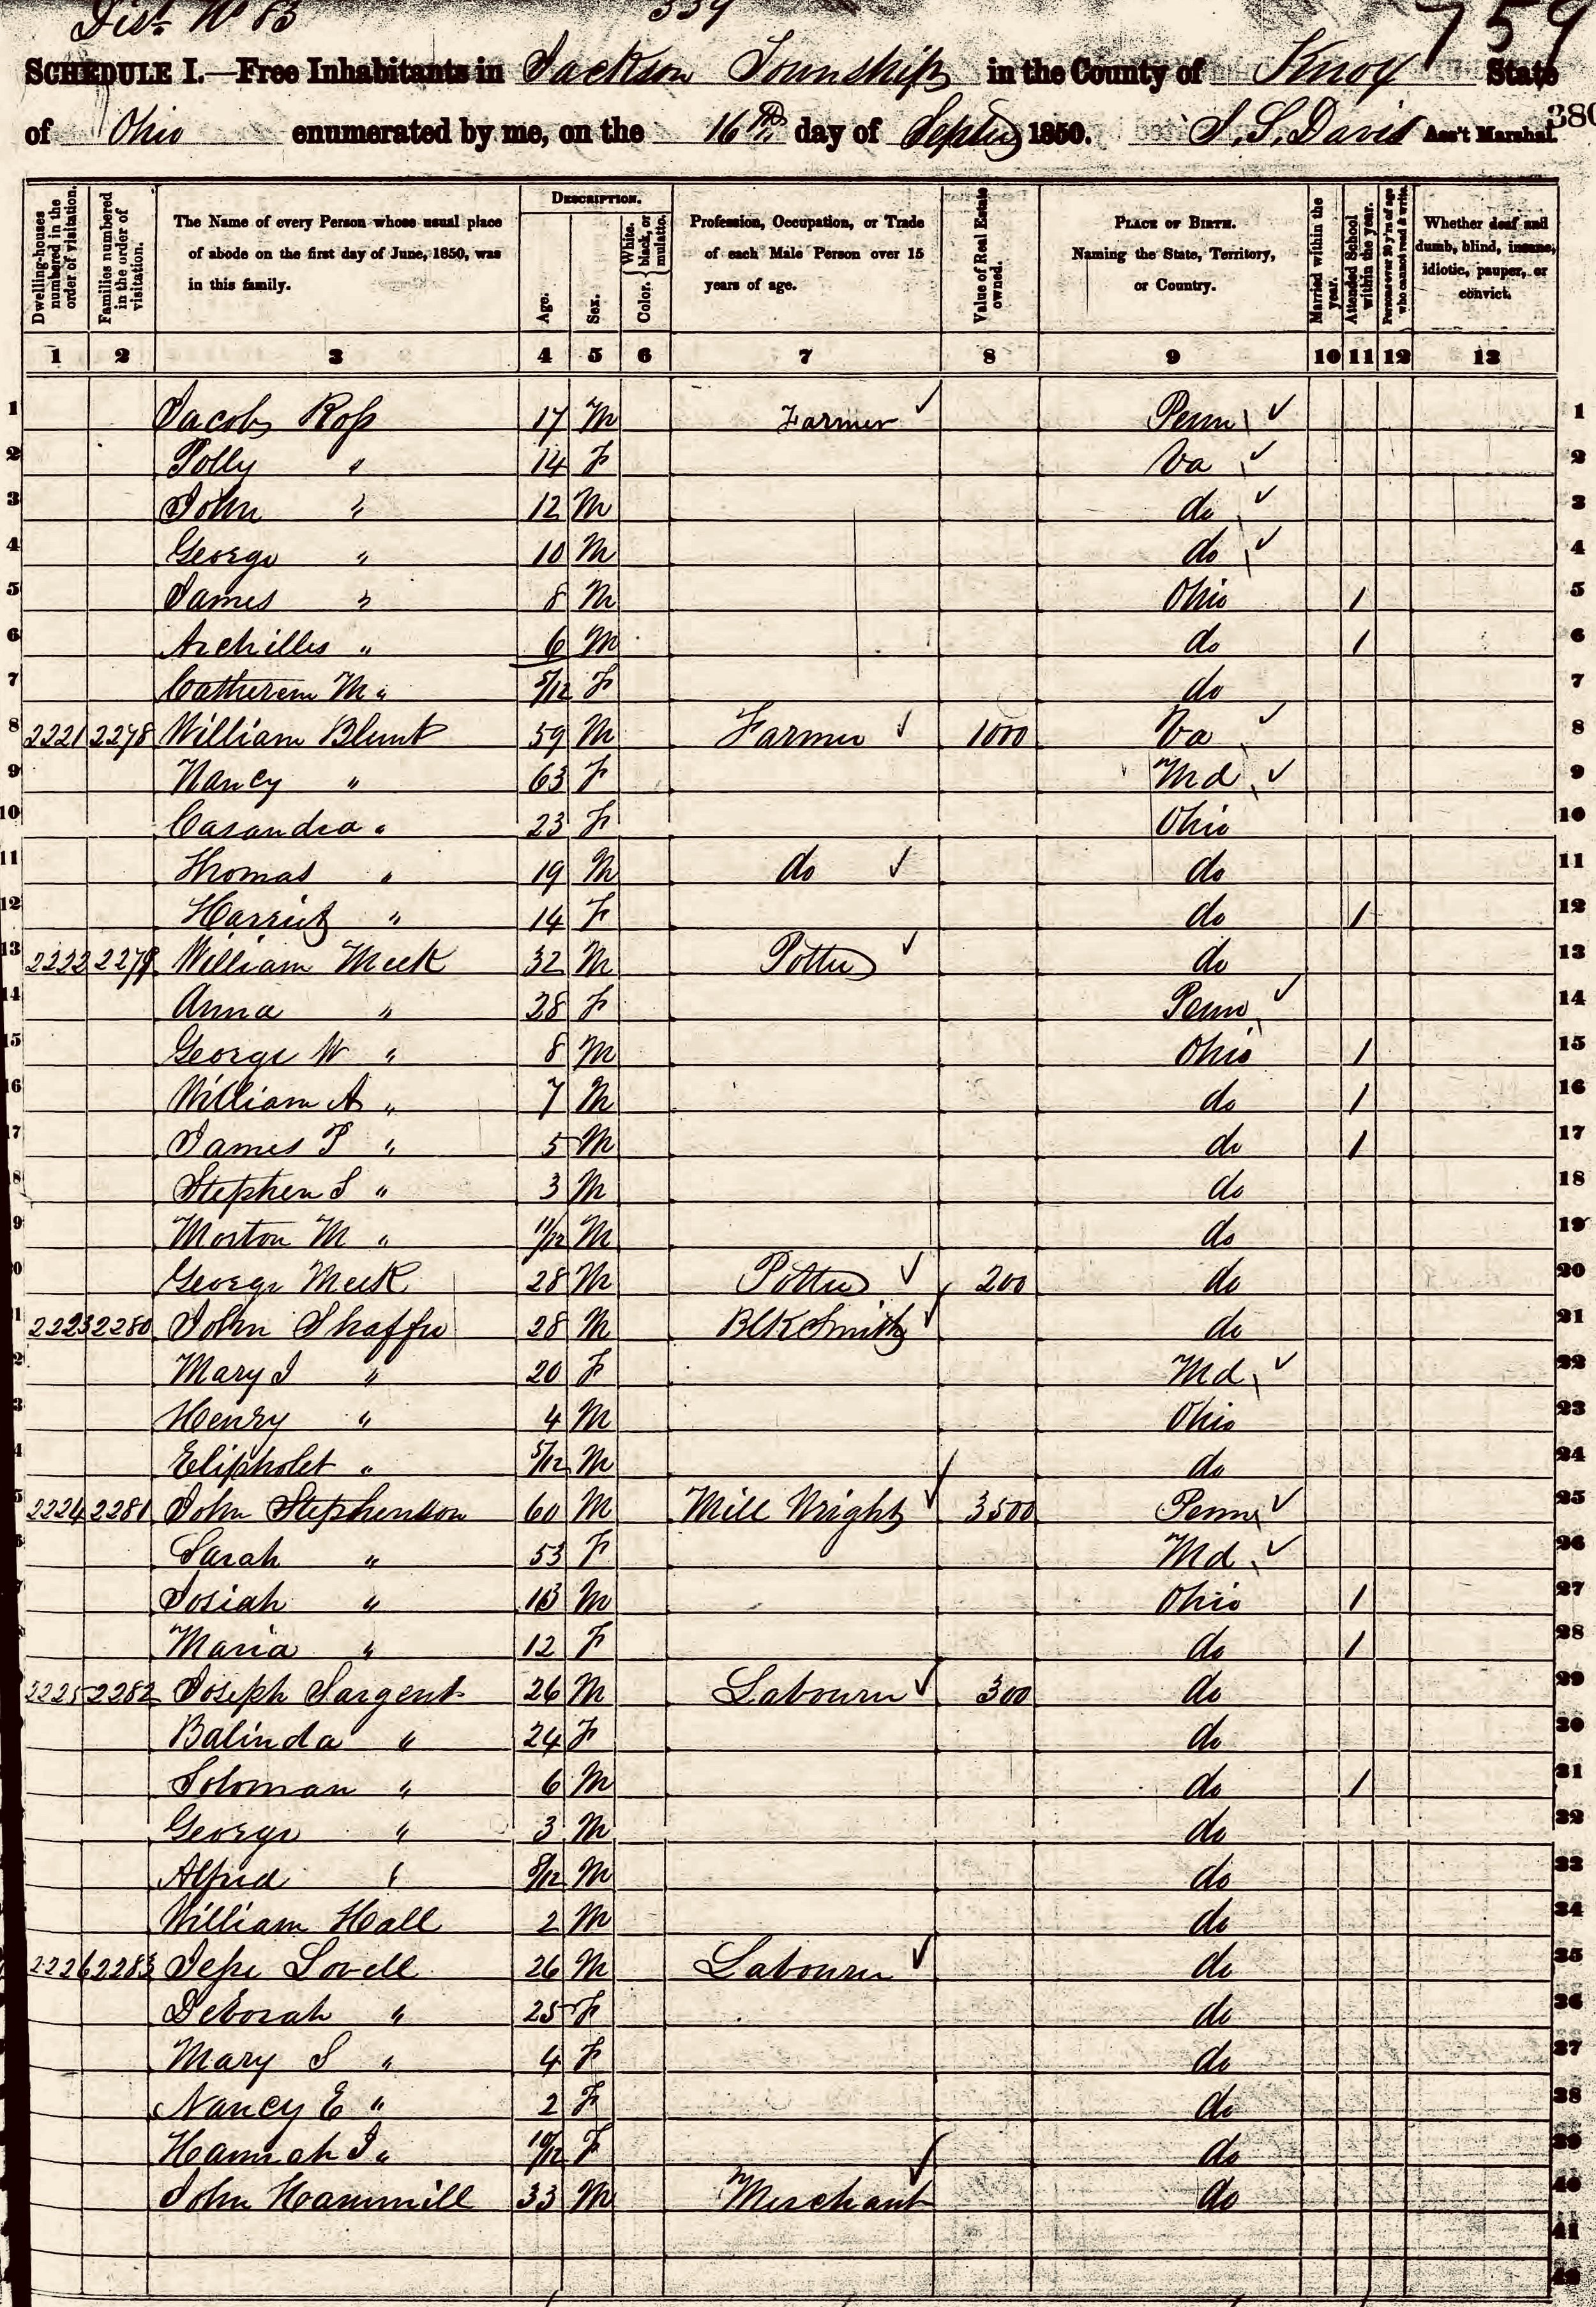 Dist. No 83
339
759
SCHEDULE I.—Free Inhabitants in Jackson Township in the County of Knox State
of Ohio enumerated by me, on the 16th day of Septer 1850. S. S. Davis Ass't Marshal.
380
Dwelling-houses numbered in the order of visitation.
Families numbered in the order of visitation.
The Name of every Person whose usual place of abode on the first day of June, 1850, was in this family.
DESCRIPTION.
Age.
Sex.
Color. { White, black, or mulatto.
Profession, Occupation, or Trade of each Male Person over 15 years of age.
Value of Real Estate owned.
PLACE OF BIRTH. Naming the State, Territory, or Country.
Married within the year.
Attended School within the year.
Persons over 20 y'rs of age who cannot read & write.
Whether deaf and dumb, blind, insane, idiotic, pauper, or convict.
1 2 3 4 5 6 7 8 9 10 11 12 13
1 Jacob Ross 17 M Farmer ✓ Penn ✓ 1
2 Polly " 14 F Va ✓ 2
3 John " 12 M do ✓ 3
4 George " 10 M do ✓ 4
5 James " 8 M Ohio 1 5
6 Archilles " 6 M do 1 6
7 Catheren M " 5/12 F do 7
8 2221 2278 William Blunt 59 M Farmer ✓ 1000 Va ✓ 8
9 Nancy " 63 F Md ✓ 9
10 Casandra " 23 F Ohio 10
11 Thomas " 19 M do ✓ do 11
12 Harriet " 14 F do 1 12
13 2222 2279 William Meek 32 M Potter ✓ do 13
14 Anna " 28 F Penn ✓ 14
15 George W " 8 M Ohio 1 15
16 William A " 7 M do 1 16
17 James P " 5 M do 1 17
18 Stephen S " 3 M do 18
19 Morton M " 11/12 M do 19
20 George Meek 28 M Potter ✓ 200 do 20
21 2223 2280 John Shaffer 28 M Blk Smith ✓ do 21
22 Mary J " 20 F Md ✓ 22
23 Henry " 4 M Ohio 23
24 Elipholet " 5/12 M do 24
25 2224 2281 John Stephenson 60 M Mill Wright ✓ 3500 Penn ✓ 25
26 Sarah " 53 F Md ✓ 26
27 Josiah " 13 M Ohio 1 27
28 Maria " 12 F do 1 28
29 2225 2282 Joseph Sargent 26 M Labourer ✓ 300 do 29
30 Balinda " 24 F do 30
31 Soloman " 6 M do 1 31
32 George " 3 M do 32
33 Alfred " 8/12 M do 33
34 William Hall 2 M do 34
35 2226 2283 Jesse Lovell 26 M Labourer ✓ do 35
36 Deborah " 25 F do 36
37 Mary S " 4 F do 37
38 Nancy E " 2 F do 38
39 Hannah J " 10/12 F do 39
40 John Hammill 33 M Merchant ✓ do 40
41
42